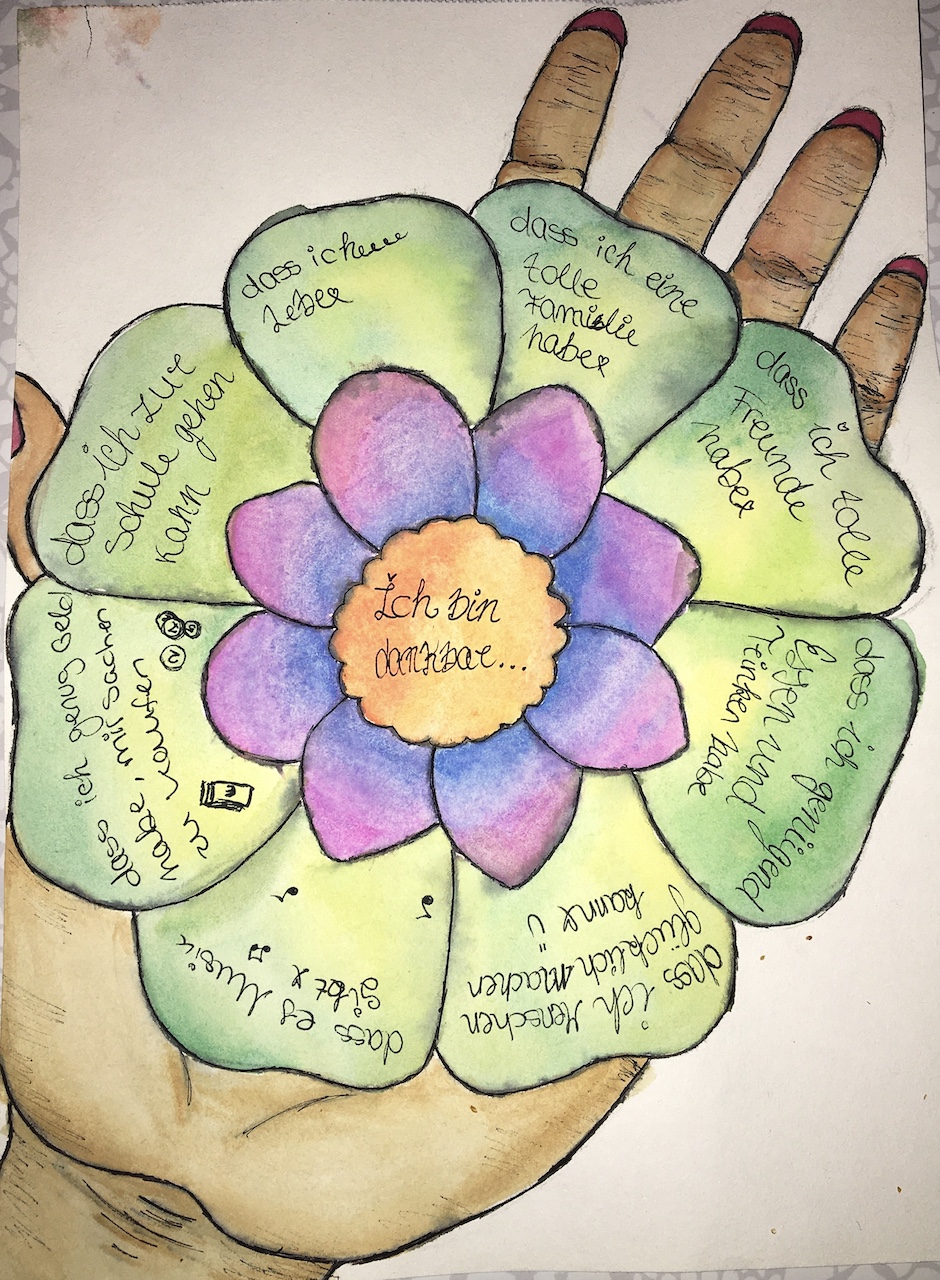 Ich bin
dankbar...
dass ich
Lebe
dass ich eine
tolle
Familie
habe
dass ich tolle
Freunde
habe
dass ich genügend
Essen und
Trinken habe
dass ich Menschen
glücklich machen
kann ü
dass es Musik
gibt
dass ich genug Geld
habe, mir Sachen
zu kaufen
dass ich zur
Schule gehen
kann